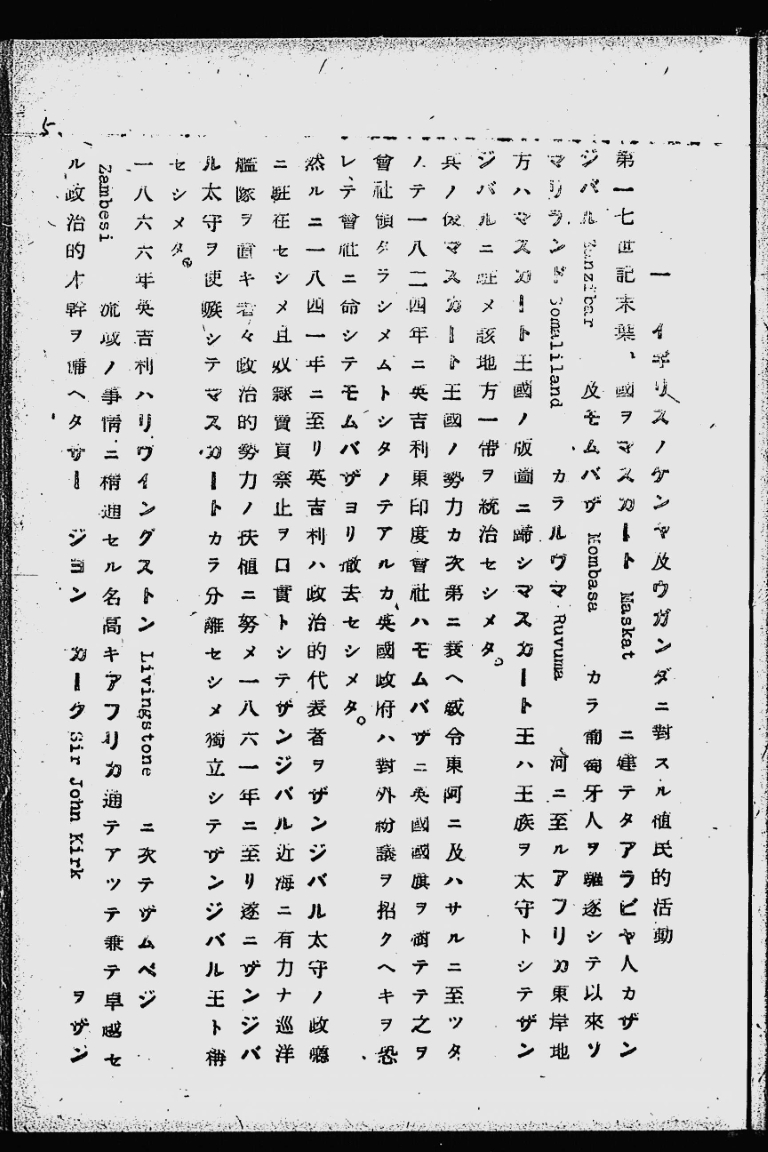 5.
一 イギリスノケンヤ及ウガンダニ對スル植民的活動
第一七世記末葉、國ヲマスカート Maskat ニ建テタアラビヤ人カザン
ジバル Zanzibar 及モムバザ Mombasa カラ葡萄牙人ヲ驅逐シテ以來ソ
マリランド Somaliland カラルヴマ Ruvuma 河ニ至ルアフリカ東岸地
方ハマスカート王國ノ版圖ニ歸シマスカート王ハ王族ヲ太守トシテザン
ジバルニ駐メ該地方一帶ヲ統治セシメタ。
其ノ後マスカート王國ノ勢力カ次第ニ衰ヘ威令東阿ニ及ハサルニ至ツタ
ノテ一八二四年ニ英吉利東印度會社ハモムバザニ英國國旗ヲ樹テテ之ヲ
會社領タラシメムトシタノテアルカ、英國政府ハ對外紛議ヲ招クヘキヲ恐
レテ會社ニ命シテモムバザヨリ撤去セシメタ。
然ルニ一八四一年ニ至リ英吉利ハ政治的代表者ヲザンジバル太守ノ政廳
ニ駐在セシメ且奴隸賣買禁止ヲ口實トシテザンジバル近海ニ有力ナ巡洋
艦隊ヲ置キ着々政治的勢力ノ扶植ニ努メ一八六一年ニ至リ遂ニザンジバ
ル太守ヲ使嗾シテマスカートカラ分離セシメ獨立シテザンジバル王ト稱
セシメタ。
一八六六年英吉利ハリヴイングストン Livingstone ニ次テザムベジ
Zambesi 流域ノ事情ニ精通セル名高キアフリカ通テアツテ兼テ卓越セ
ル政治的才幹ヲ備ヘタサー ジヨン カーク Sir John Kirk ヲザン